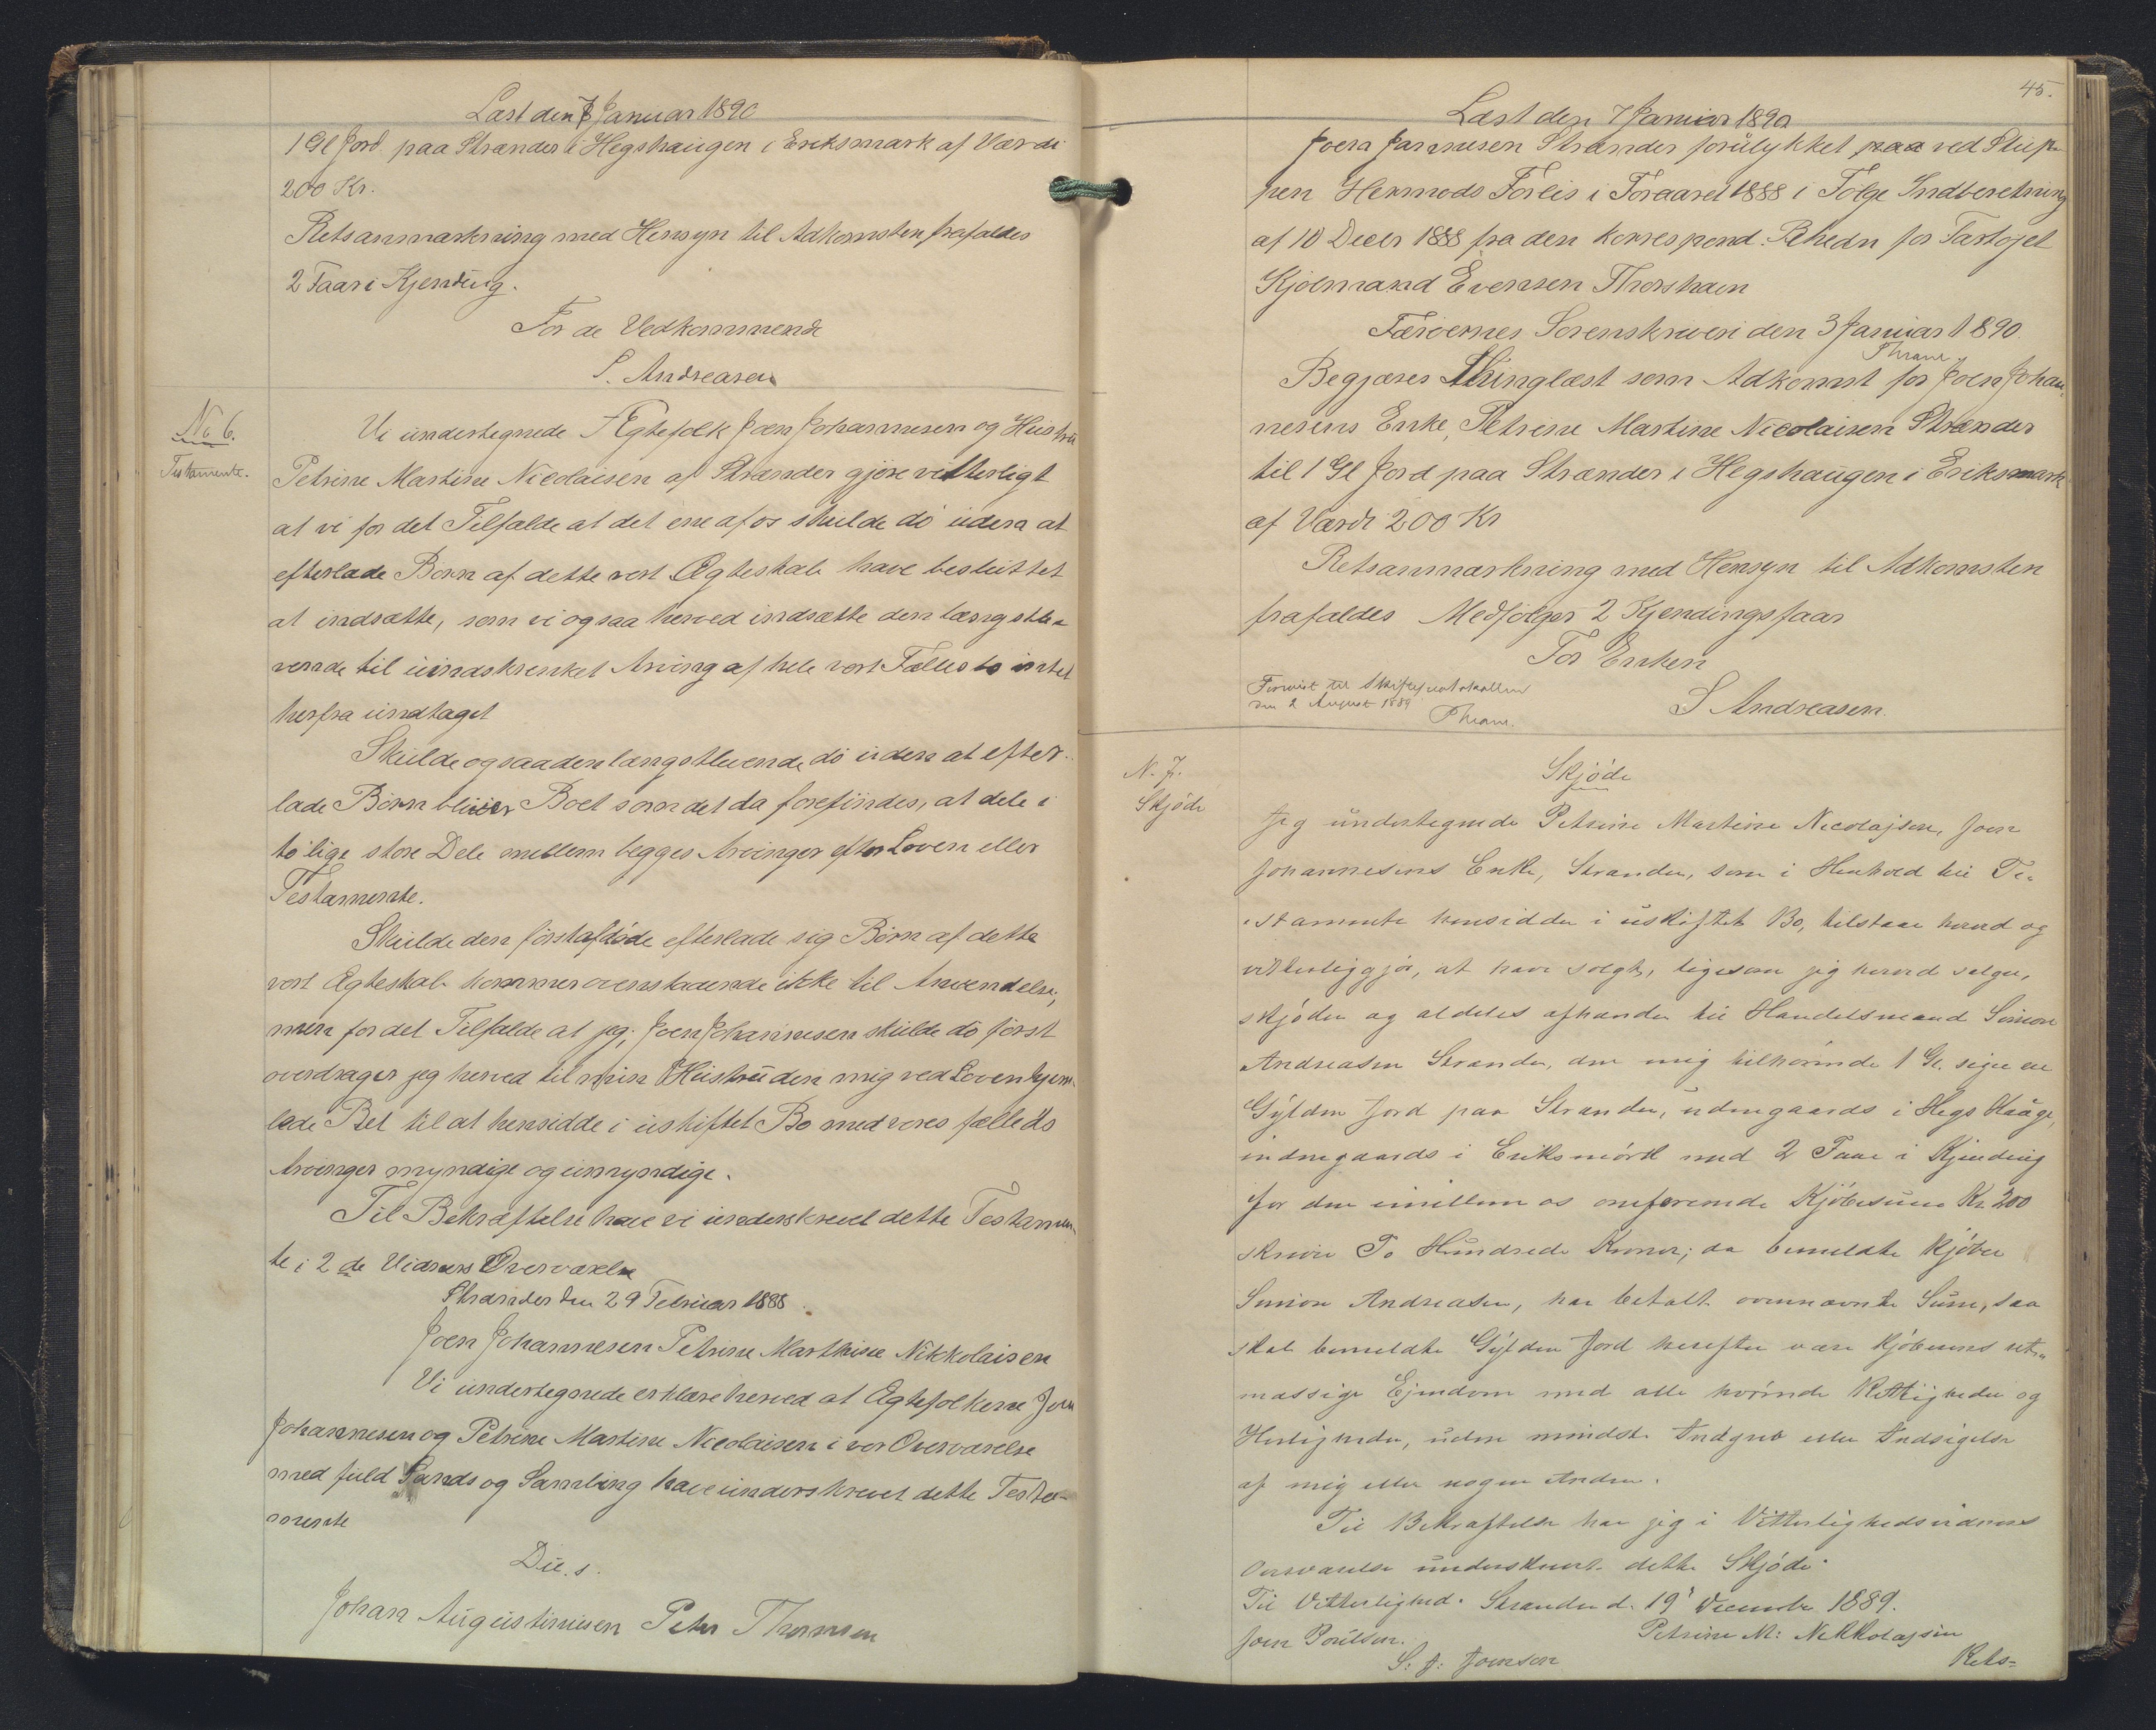 Læst den 7 Januar 1890
1 Gl Jord paa Strænder i Hegshaugen i Eriksmark af Værdi
200 Kr.
Retsanmærkning med Hensyn til Adkomsten frafaldes
2 Faar i Kjending.
For de Vedkommende
S. Andreasen
No 6.
Testamente.
Vi undertegnede Ægtefolk Joen Johannesen og Hustru
Petrine Martine Nicolaisen af Strænder gjøre vitterligt
at vi for det Tilfælde at det ene af os skulde dö uden at
efterlade Børn af dette vort Ægteskab have besluttet
at indsætte, som vi ogsaa herved indsætte den længstle-
vende til uindskrenket Arving af hele vort Fælles bo intet
herfra undtaget
Skulde ogsaa den længstlevende dö uden at efter-
lade Börn bliver Boet som det da forefindes, at dele i
to lige store Dele mellem begges Arvinger efter Loven eller
Testamente.
Skulde den förstafdöde efterlade sig Börn af dette
vort Ægteskab kommer ovenstaaende ikke til Anvendelse,
men for det Tilfælde at jeg, Joen Johannesen skulde dö först
overdrager jeg herved til min Hustru den mig ved Loven hjem-
lede Ret til at hensidde i uskiftet Bo med vores fælleds
Arvinger myndige og umyndige.
Til Bekræftelse have vi underskrevet dette Testamen-
te i 2 de Vidners Overværelse
Strænder den 29 Februar 1888.
Joen Johannesen Petrine Marthine Nikkolaisen
Vi undertegnede erklære herved at Ægtefolkene Joen
Johannesen og Petrine Martine Nicolaisen i vor Overværelse
med fuld Sands og Samling have underskrevet dette Testa-
mente
D. u. s.
Johan Augustinusen Peter Thomsen
45.
Læst den 7 Januar 1890
Joen Johannesen Strænder forulykket paa ved Slup-
pen Hermods Forlis i Foraaret 1888 i Følge Indberetning
af 10 Decbr 1888 fra den korrespond. Rhedr for Fartøjet
Kjøbmand Evensen Thorshavn
Færøernes Sorenskriveri den 3 Januar 1890.
Begjæres Thinglæst som Adkomst for Joen Johan-
nesens Enke, Petrine Martine Nicolaisen Strænder
til 1 Gl Jord paa Strænder i Hegshaugen i Eriksmark
af Værdi 200 Kr
Retsanmærkning med Hensyn til Adkomsten
frafaldes Medfølger 2 Kjendingsfaar
For Enken
Forevist til Skifteprotokollen
den 2 August 1889
S Andreasen.
N. 7.
Skjöde
Skjöde
Jeg undertegnede Petrine Martine Nicolajsen, Joen
Johannesens Enke, Strander, som i Henhold til Te-
stamente hensidder i uskiftet Bo, tilstaar herved og
vitterliggjör, at have solgt, ligesom jeg herved sælger,
skjöder og aldeles afhænder til Handelsmand Simon
Andreasen Strander, den mig tilhörende 1 Gl. siger en
Gylden Jord paa Strander, udengaards i Hegs Hauge,
indengaards i Eriksmörk med 2 Faar i Kjending
for den imellem os omforenede Kjöbesum Kr 200
skriver To Hundrede Kroner; da bemeldte Kjöber
Simon Andreasen, har betalt ovennævnte Sum, saa
skal bemeldte Gylden Jord herefter være Kjöberens ret-
mæssige Ejendom med alle hörende Rettigheder og
Herligheder, uden mindste Indgreb eller Indsigelse
af mig eller nogen Anden.
Til Bekræftelse har jeg i Vitterlighedsvidners
Overværelse underskrevet dette Skjöde.
Til Vitterlighed. Strander d. 19' December 1889.
Joen Poulsen. Petrine M: Nikkolajsen
S: J: Joensen
Rets=